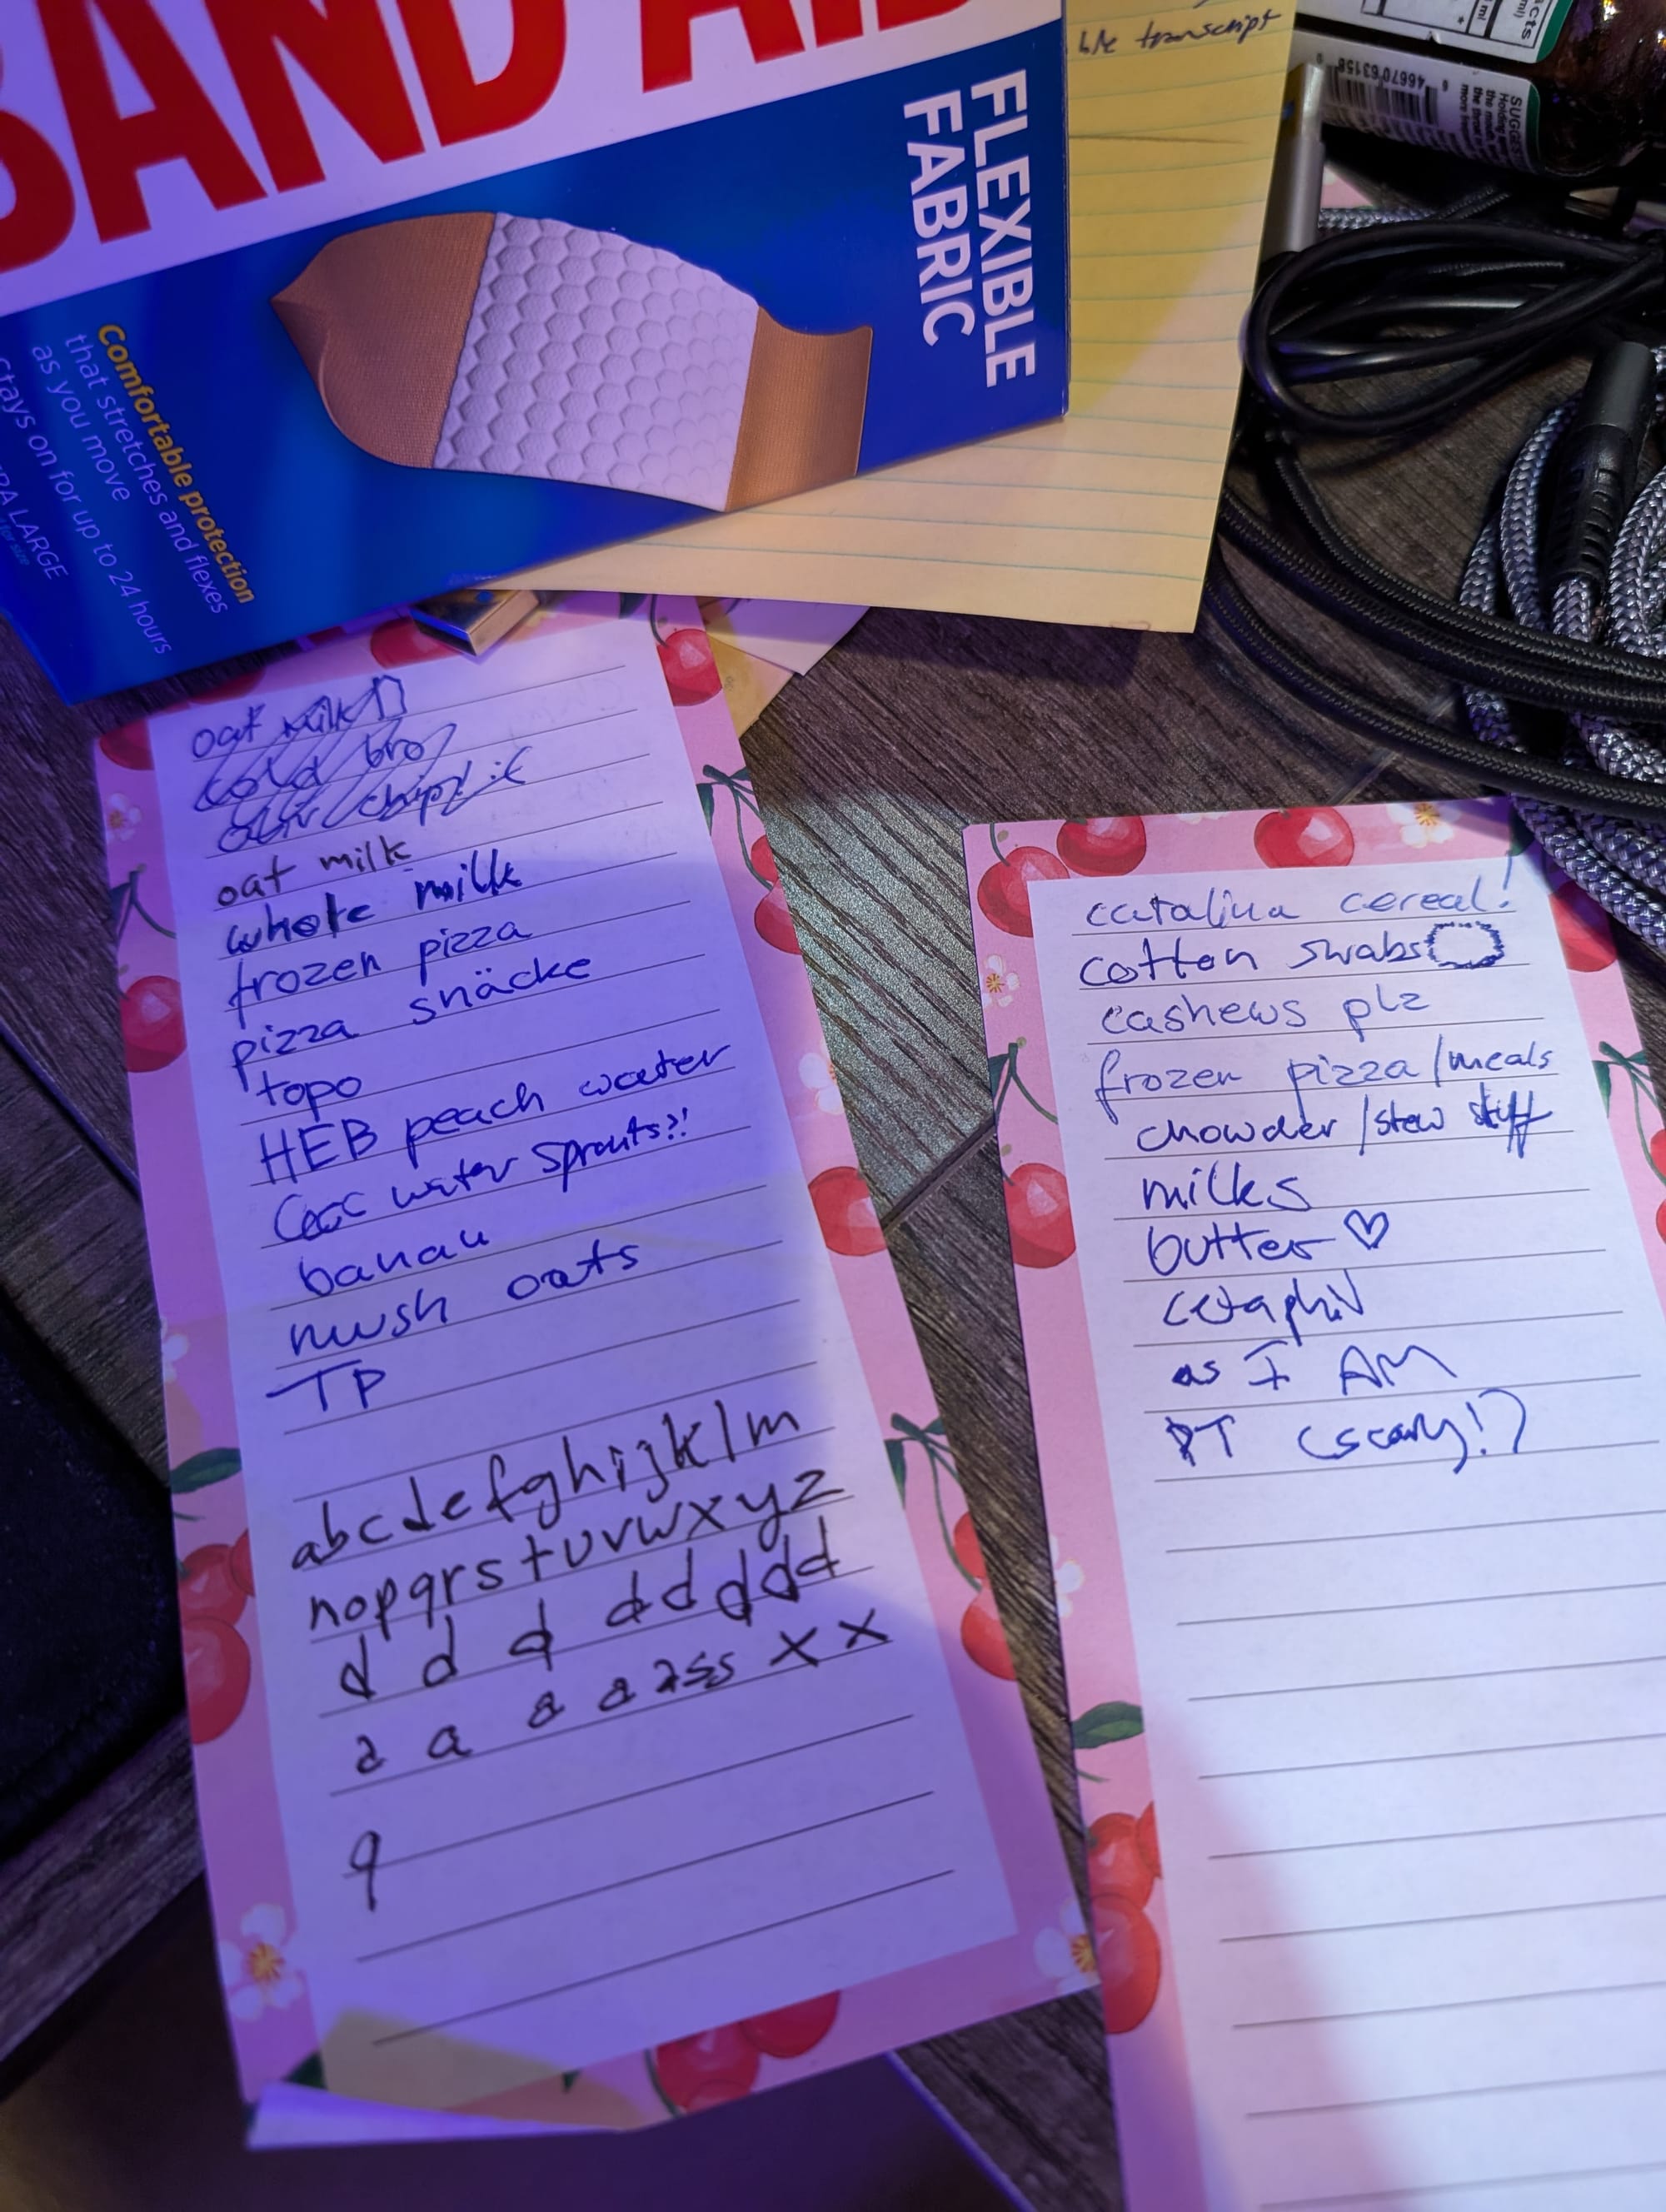 BAND-AID
FLEXIBLE
FABRIC
Comfortable protection
that stretches and flexes
as you move
Stays on for up to 24 hours
LARGE
transcript
46670 63158
SUGGES
Holding
the mouth
the throat
oat milk
cold bro
chips :(
oat milk
whole milk
frozen pizza
pizza snäcke
topo
HEB peach water
water sprouts?!
banau
mush oats
TP
abcdefghijklm
nopqrstuvwxyz
d d d d d d d d
a a a a a s s x x
q
catalina cereal!
cotton swabs
cashews plz
frozen pizza/meals
chowder/stew stuff
milks
butter ♡
cetaphil
as I AM
PT (scary!)